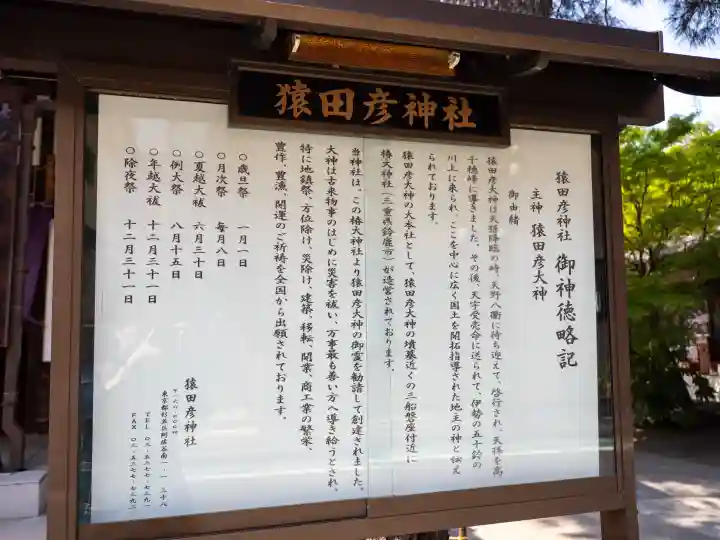 猿田彦神社
猿田彦神社 御神徳略記
主神 猿田彦大神
御由緒
猿田彦大神は天孫降臨の時、天野八衢に待ち迎えて、啓行され、天孫を高
千穂峰に導きました。その後、天宇受売命に送られて、伊勢の五十鈴の
川上に来られ、ここを中心に広く国土を開拓指導された地主の神と伝え
られております。
猿田彦大神の大本社として、猿田彦大神の墳墓近くの三船磐座付近に
椿大神社(三重県鈴鹿市)が造営されております。
当神社は、この椿大神社より猿田彦大神の御霊を勧請して創建されました。
大神は古来物事のはじめに災害を祓い、万事最も善い方へ導き給うとされ、
特に地鎮祭、方位除け、災除け、建築、移転、開業、商工業の繁栄、
豊作、豊漁、開運のご祈祷を全国から出願されております。
○歳旦祭 一月一日
○月次祭 毎月八日
○夏越大祓 六月三十日
○例大祭 八月十五日
○年越大祓 十二月三十一日
○除夜祭 十二月三十一日
猿田彦神社
東京都杉並区阿佐谷南一-一-三十八
TEL 〇三-五三七七-七三九一
FAX 〇三-五三七七-七三九二